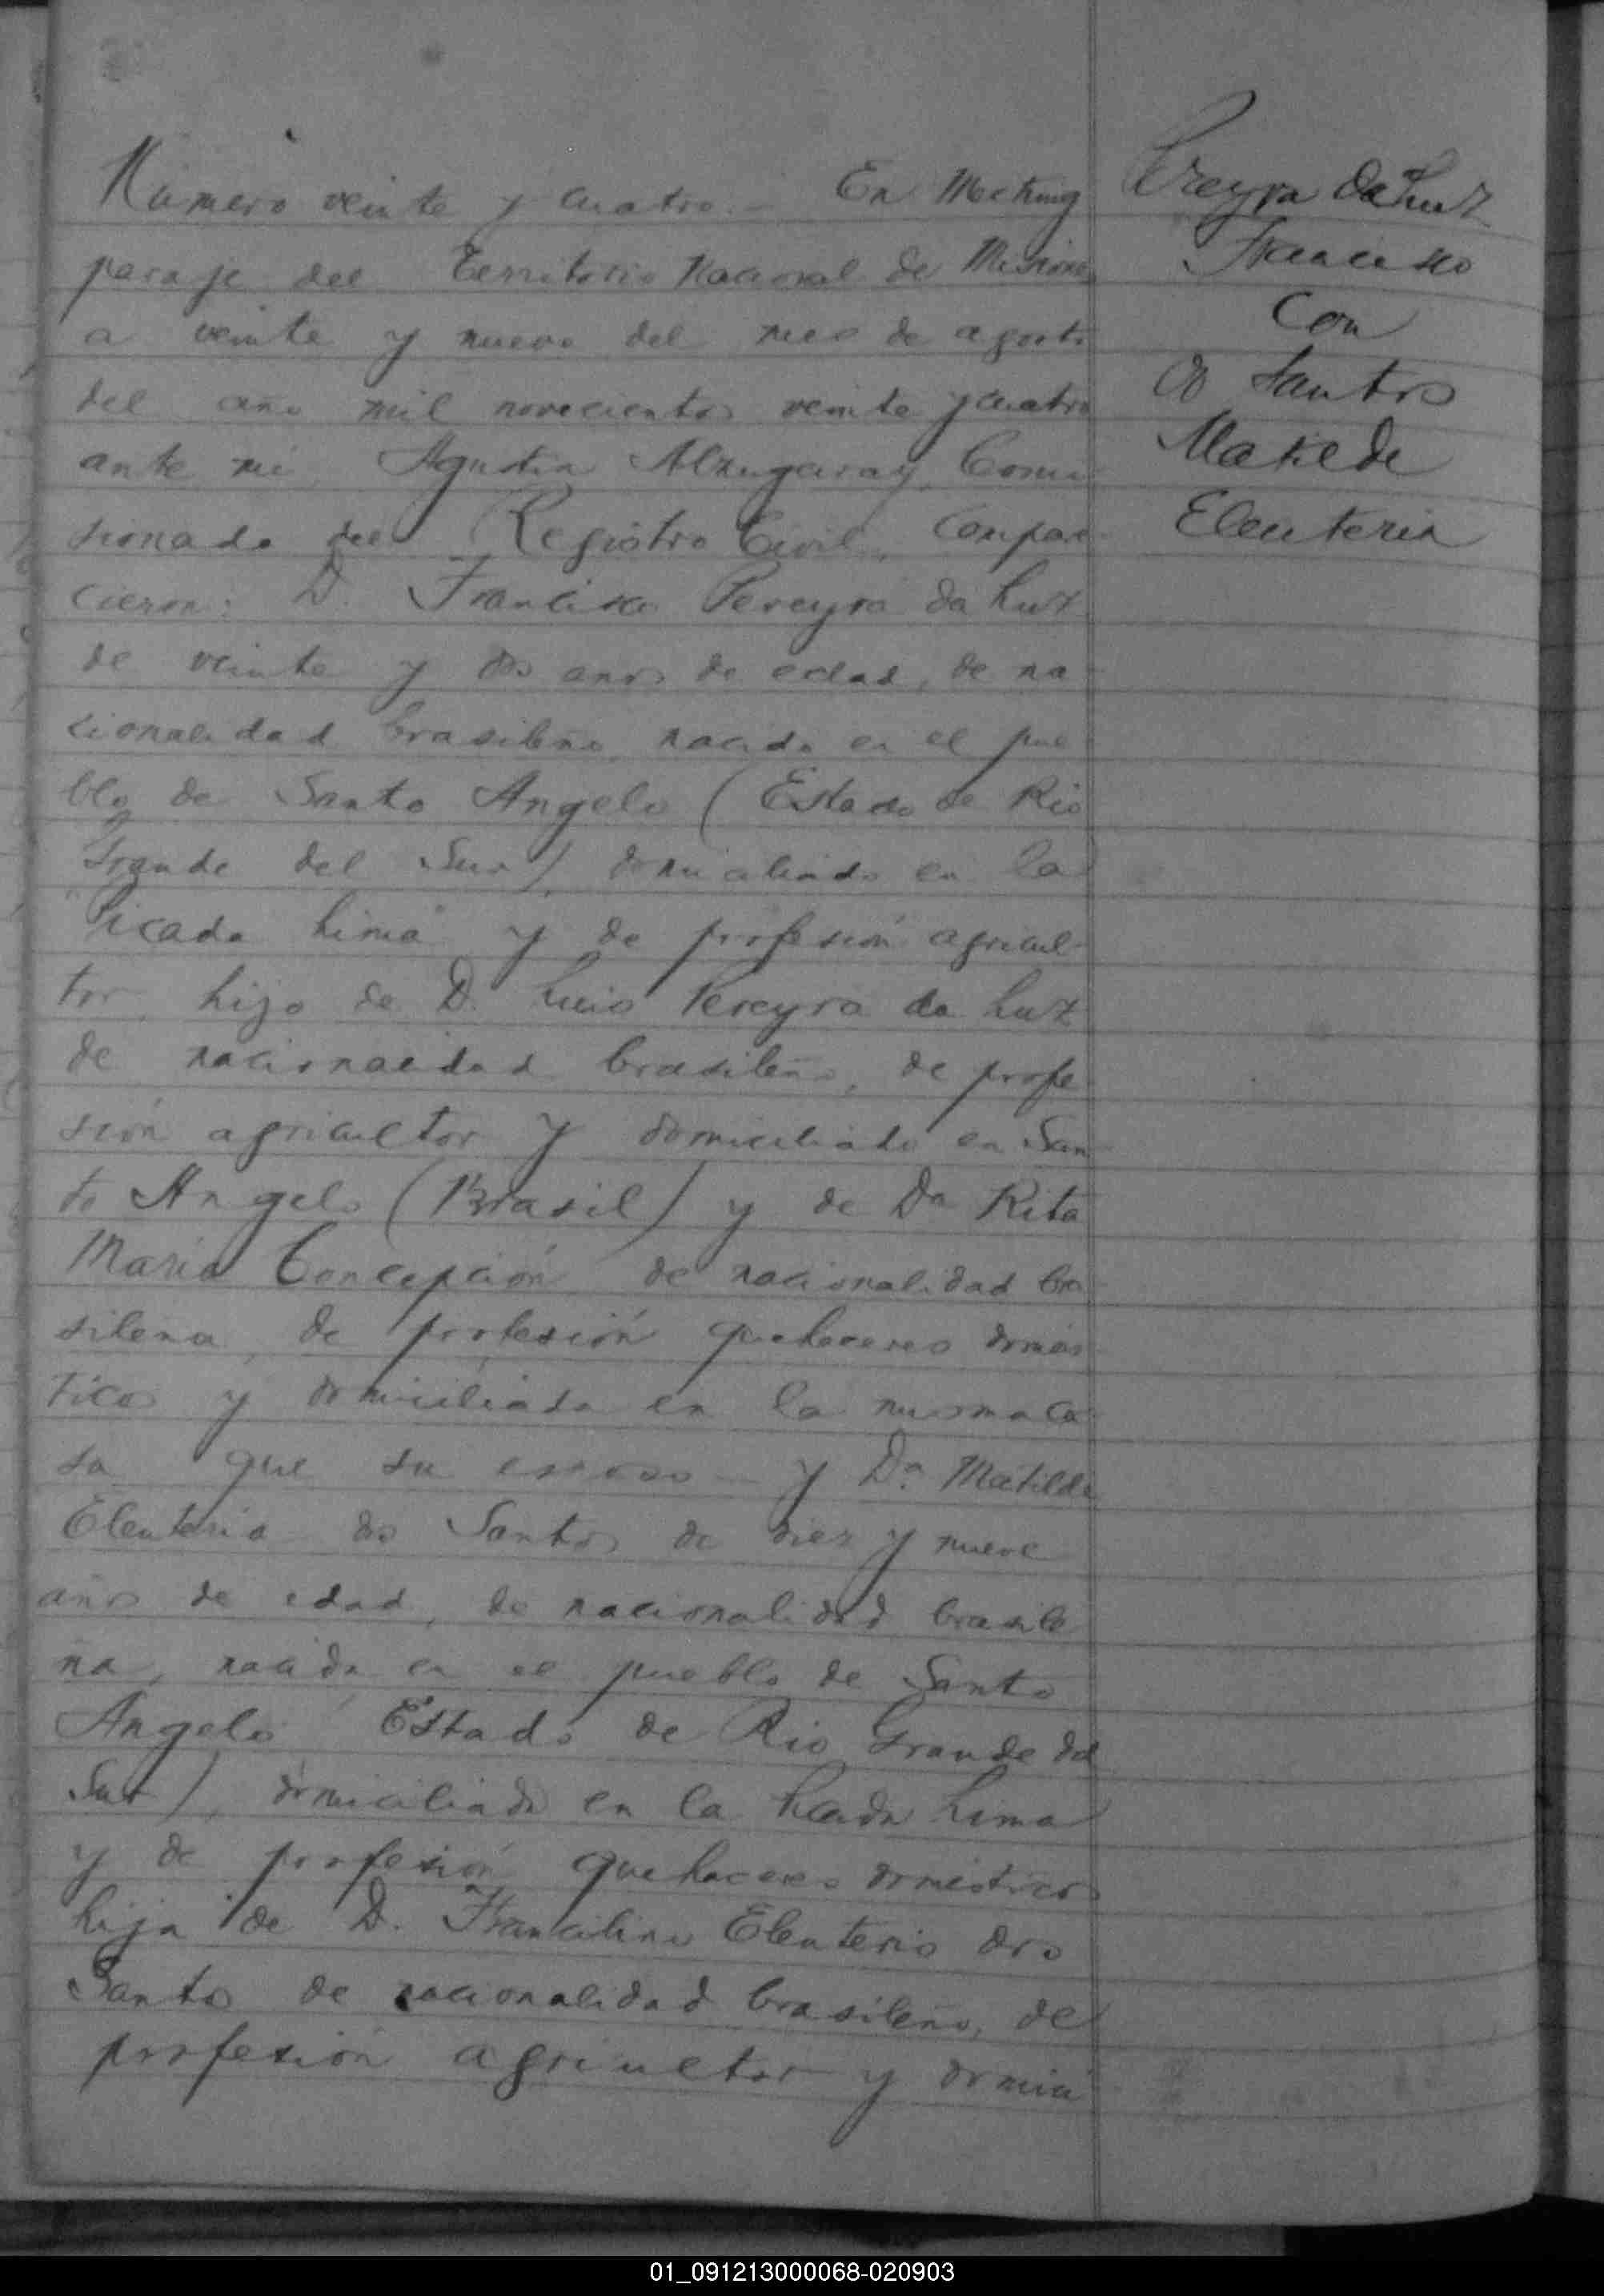 Número veinte y cuatro.- En Mecking
paraje del Territorio Nacional de Misiones
a veinte y nueve del mes de agosto
del año mil novecientos veinte y cuatro
ante mi Agustin Alzugaray, Comi
sionado del Registro Civil, Compare-
cieron: D. Francisco Pereyra da Luz
de veinte y dos anos de edad, de na-
cionalidad brasileño, nacido en el pue
blo de Santo Angelo (Estado de Rio
Grande del Sur), domiciliado en la
"Picada Lima" y de profesión agricul-
tor, hijo de D. Luis Pereyra da Luz
de nacionalidad brasileño, de profe
sión agricultor y domiciliado en San
to Angelo (Brasil) y de Da Rita
Maria Concepción, de nacionalidad bra-
silena, de profesión quehaceres domés-
ticos y domiciliada en la misma ca-
sa que su esposo - y Da. Matilde
Eleuteria dos Santos de diez y nueve
años de edad, de nacionalidad brasile
ña, nacida en el pueblo de Santo
Angelo Estado de Rio Grande del
Sur), domiciliada en la Picada Lima
y de profesión quehaceres domésticos
hija de D. Francilino Eleuterio dos
Santos de nacionalidad brasileño, de
profesión agricultor y domici
Pereyra da Luz
Francisco
Con
do Santos
Matilde
Eleuteria
01_091213000068-020903